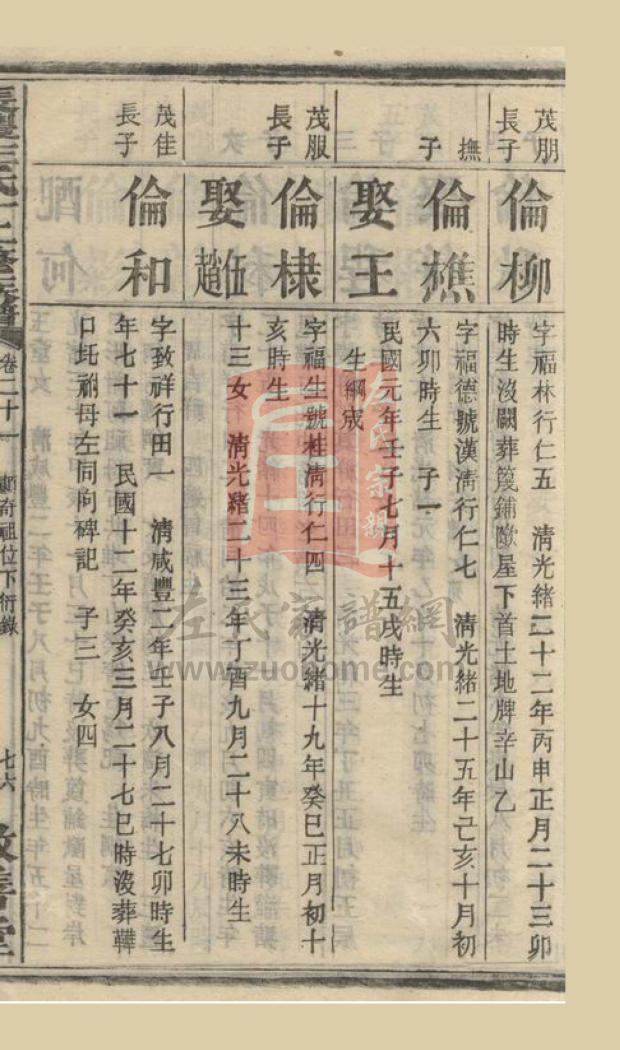 茂朋
長子
倫柳
字福林行仁五 清光緒二十二年丙申正月二十三卯
時生沒闕葬篾鋪歐屋下首土地牌辛山乙
撫
子
倫樵
字福德號漢清行仁七 清光緒二十五年己亥十月初
六卯時生 子一
娶王
民國元年壬子七月十五戌時生
生綱成
茂服
長子
倫棣
字福生號桂清行仁四 清光緒十九年癸巳正月初十
亥時生
娶伍趙
十三女 清光緒二十三年丁酉九月二十八未時生
茂佳
長子
倫和
字致祥行田一 清咸豐二年壬子八月二十七卯時生
年七十一 民國十二年癸亥三月二十七巳時沒葬
口圫祔母左同向碑記 子三 女四
氏
卷二十一
奇祖位下衍錄
七六
左氏宗譜
左氏家譜網
www.zuojiome.com